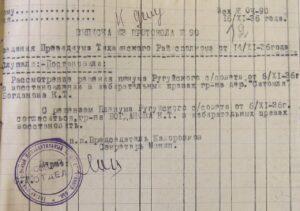 К делу
Исх № 04-90
16/XI-36 г.
ВЫПИСКА ИЗ ПРОТОКОЛА № 90
заседания Президиума Тихвинского Рай сполкома от 14/XI-36года
Слушали:-Постановили:
Рассмотрение решения пленума Ругуйского с/совета от 6/XI-36г.
о восстановлении в избирательных правах гр-на дер.
Богданова К.Т.
С решением Пленума Ругуйского с/совета от 6/XI-36г.
согласиться, гр-на БОГДАНОВА К.Т. в избирательных правах
восстановить.
п.п. Председатель Кадоровнов
Секретарь
Верно:
ОТДЕЛ